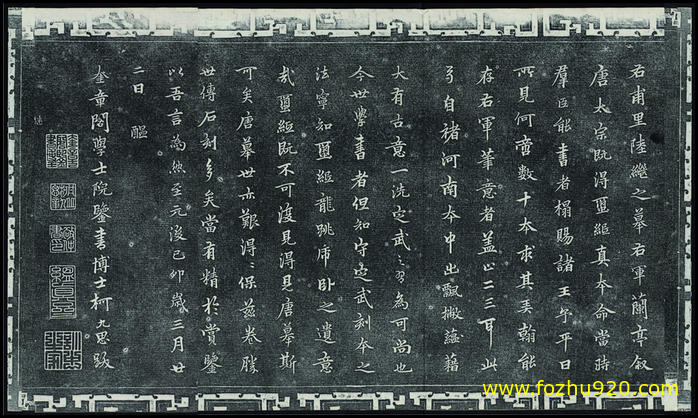 右甫里陸繼之摹右軍蘭亭敘
唐太宗既得璽紙真本命當時
羣臣能書者搨賜諸王余平日
所見何啻數十本求其弄翰能
存右軍筆意者蓋止二三耳此
乃自褚河南本中出飄撇蘊藉
大有古意一洗定武〻習為可尚也
今世學書者但知守定武刻本之
法寧知璽紙龍跳虎卧之遺意
哉璽紙既不可復見得見唐摹斯
可矣唐摹世亦艱得〻保茲卷勝
世傳石刻多矣當有精於賞鑒
以吾言為然至元後己卯歲三月廿
二日
奎章閣學士院鑒書博士柯九思跋
www.fozhu920.com